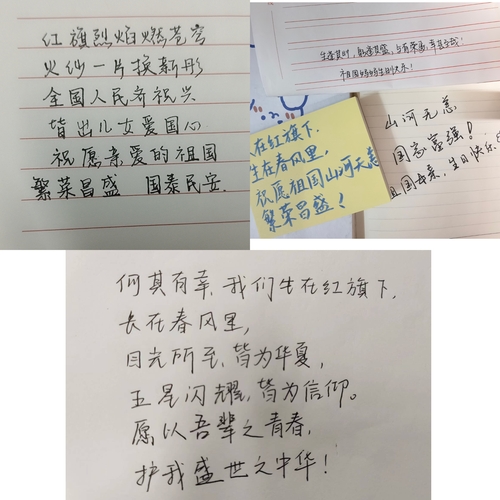 红旗烈焰燃苍穹
火纱一片换新彤
全国人民齐祝兴
皆出儿女爱国心
祝愿亲爱的祖国
繁荣昌盛 国泰民安.
生逢其时,躬逢其盛,与有荣焉,幸甚至哉!
祖国妈妈生日快乐!
在红旗下.
生在春风里,
祝愿祖国山河无恙
繁荣昌盛!
山河无恙
国家富强!
且国母亲,生日快乐
何其有幸,我们生在红旗下,
长在春风里,
目光所至,皆为华夏,
五星闪耀,皆为信仰。
愿以吾辈之青春,
护我盛世之中华!